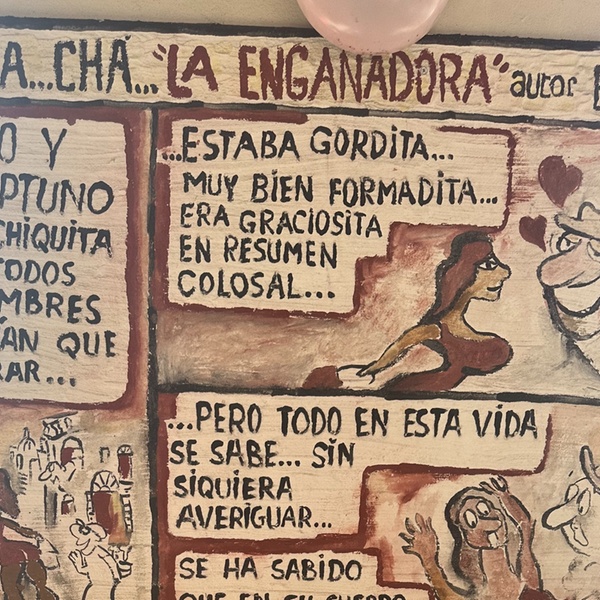 A...CHÁ... "LA ENGAÑADORA" autor
O Y
PTUNO
CHIQUITA
TODOS
MBRES
ÍAN QUE
RAR...
...ESTABA GORDITA...
MUY BIEN FORMADITA...
ERA GRACIOSITA
EN RESUMEN
COLOSAL...
...PERO TODO EN ESTA VIDA
SE SABE... SIN
SIQUIERA
AVERIGUAR...
SE HA SABIDO
QUE EN SU CUERPO